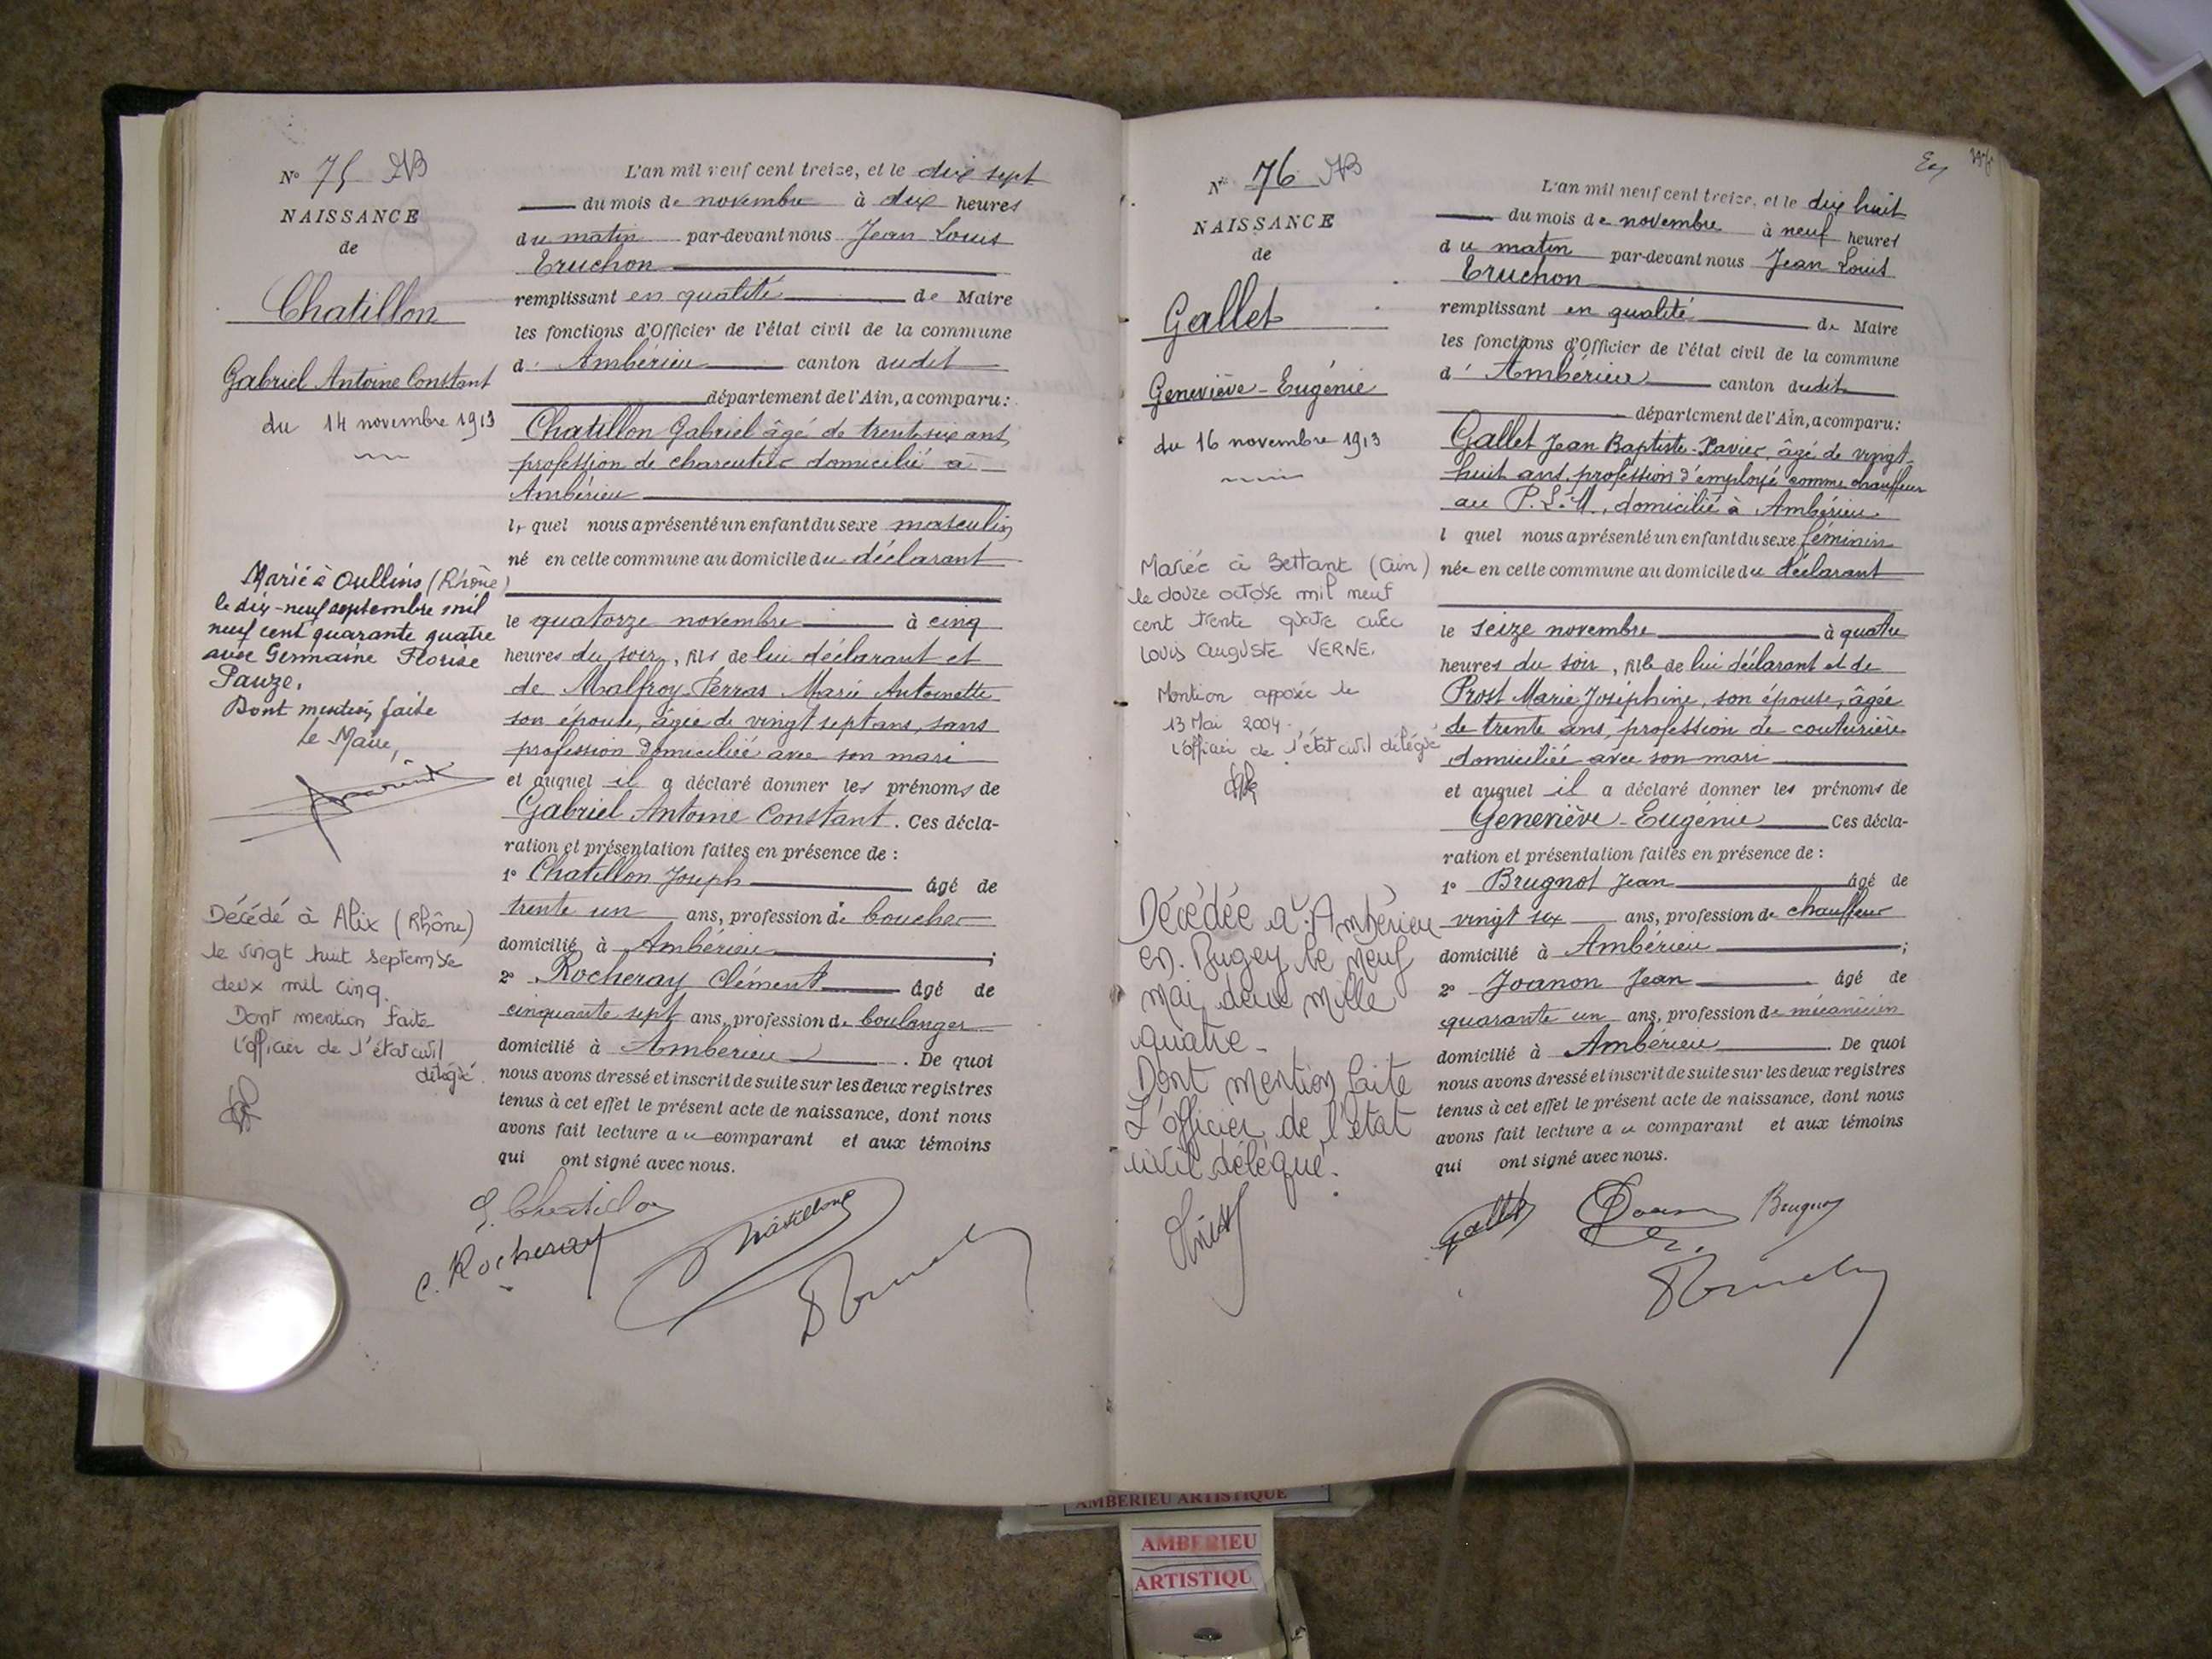 N° 75 NB
NAISSANCE
de
Chatillon
Gabriel Antoine Constant
du 14 novembre 1913
Marié à Oullins (Rhône)
le dix-neuf septembre mil
neuf cent quarante quatre
avec Germaine Florise
Pauze.
Dont mention faite
le Maire,
Décédé à Alix (Rhône)
le vingt huit septembre
deux mil cinq.
Dont mention faite
l'officier de l'état civil
délégué.
L'an mil neuf cent treize, et le dix sept
du mois de novembre à dix heures
du matin par-devant nous Jean Louis
Truchon
remplissant en qualité de Maire
les fonctions d'Officier de l'état civil de la commune
d' Ambérieu canton dudit
département de l'Ain, a comparu:
Chatillon Gabriel âgé de trente six ans,
profession de charcutier domicilié à
Ambérieu
lequel nous a présenté un enfant du sexe masculin
né en cette commune au domicile du déclarant
le quatorze novembre à cinq
heures du soir, fils de lui déclarant et
de Malfroy-Perras Marie Antoinette
son épouse, âgée de vingt sept ans, sans
profession domiciliée avec son mari
et auquel il a déclaré donner les prénoms de
Gabriel Antoine Constant. Ces décla-
ration et présentation faites en présence de :
1° Chatillon Joseph âgé de
trente un ans, profession de boucher
domicilié à Ambérieu ;
2° Rocheray Clément âgé de
cinquante sept ans, profession de boulanger
domicilié à Ambérieu . De quoi
nous avons dressé et inscrit de suite sur les deux registres
tenus à cet effet le présent acte de naissance, dont nous
avons fait lecture au comparant et aux témoins
qui ont signé avec nous.
G. Chatillon
C. Rocheray
Chatillon
Truchon
N° 76 NB
NAISSANCE
de
Gallet
Geneviève-Eugénie
du 16 novembre 1913
Mariée à Bettant (Ain)
le douze octobre mil neuf
cent trente quatre avec
Louis Auguste VERNE.
Mention apposée le
13 Mai 2004.
l'officier de l'état civil délégué
Décédée à Ambérieu
en Bugey le neuf
mai deux mille
quatre.
Dont mention faite
L'officier de l'état
civil délégué.
L'an mil neuf cent treize, et le dix huit
du mois de novembre à neuf heures
du matin par-devant nous Jean Louis
Truchon
remplissant en qualité de Maire
les fonctions d'Officier de l'état civil de la commune
d' Ambérieu canton dudit
département de l'Ain, a comparu:
Gallet Jean Baptiste-Xavier, âgé de vingt-
huit ans, profession d'employé comme chauffeur
au P.L.M., domicilié à Ambérieu
l quel nous a présenté un enfant du sexe féminin
née en cette commune au domicile du déclarant
le seize novembre à quatre
heures du soir, fille de lui déclarant et de
Prost Marie Joséphine, son épouse, âgée
de trente ans, profession de couturière
domiciliée avec son mari
et auquel il a déclaré donner les prénoms de
Geneviève-Eugénie Ces décla-
ration et présentation faites en présence de :
1° Brugnot Jean âgé de
vingt six ans, profession de chauffeur
domicilié à Ambérieu ;
2° Joanon Jean âgé de
quarante un ans, profession de mécanicien
domicilié à Ambérieu . De quoi
nous avons dressé et inscrit de suite sur les deux registres
tenus à cet effet le présent acte de naissance, dont nous
avons fait lecture au comparant et aux témoins
qui ont signé avec nous.
Gallet
Brugnot
Truchon
AMBERIEU ARTISTIQUE
AMBERIEU
ARTISTIQU